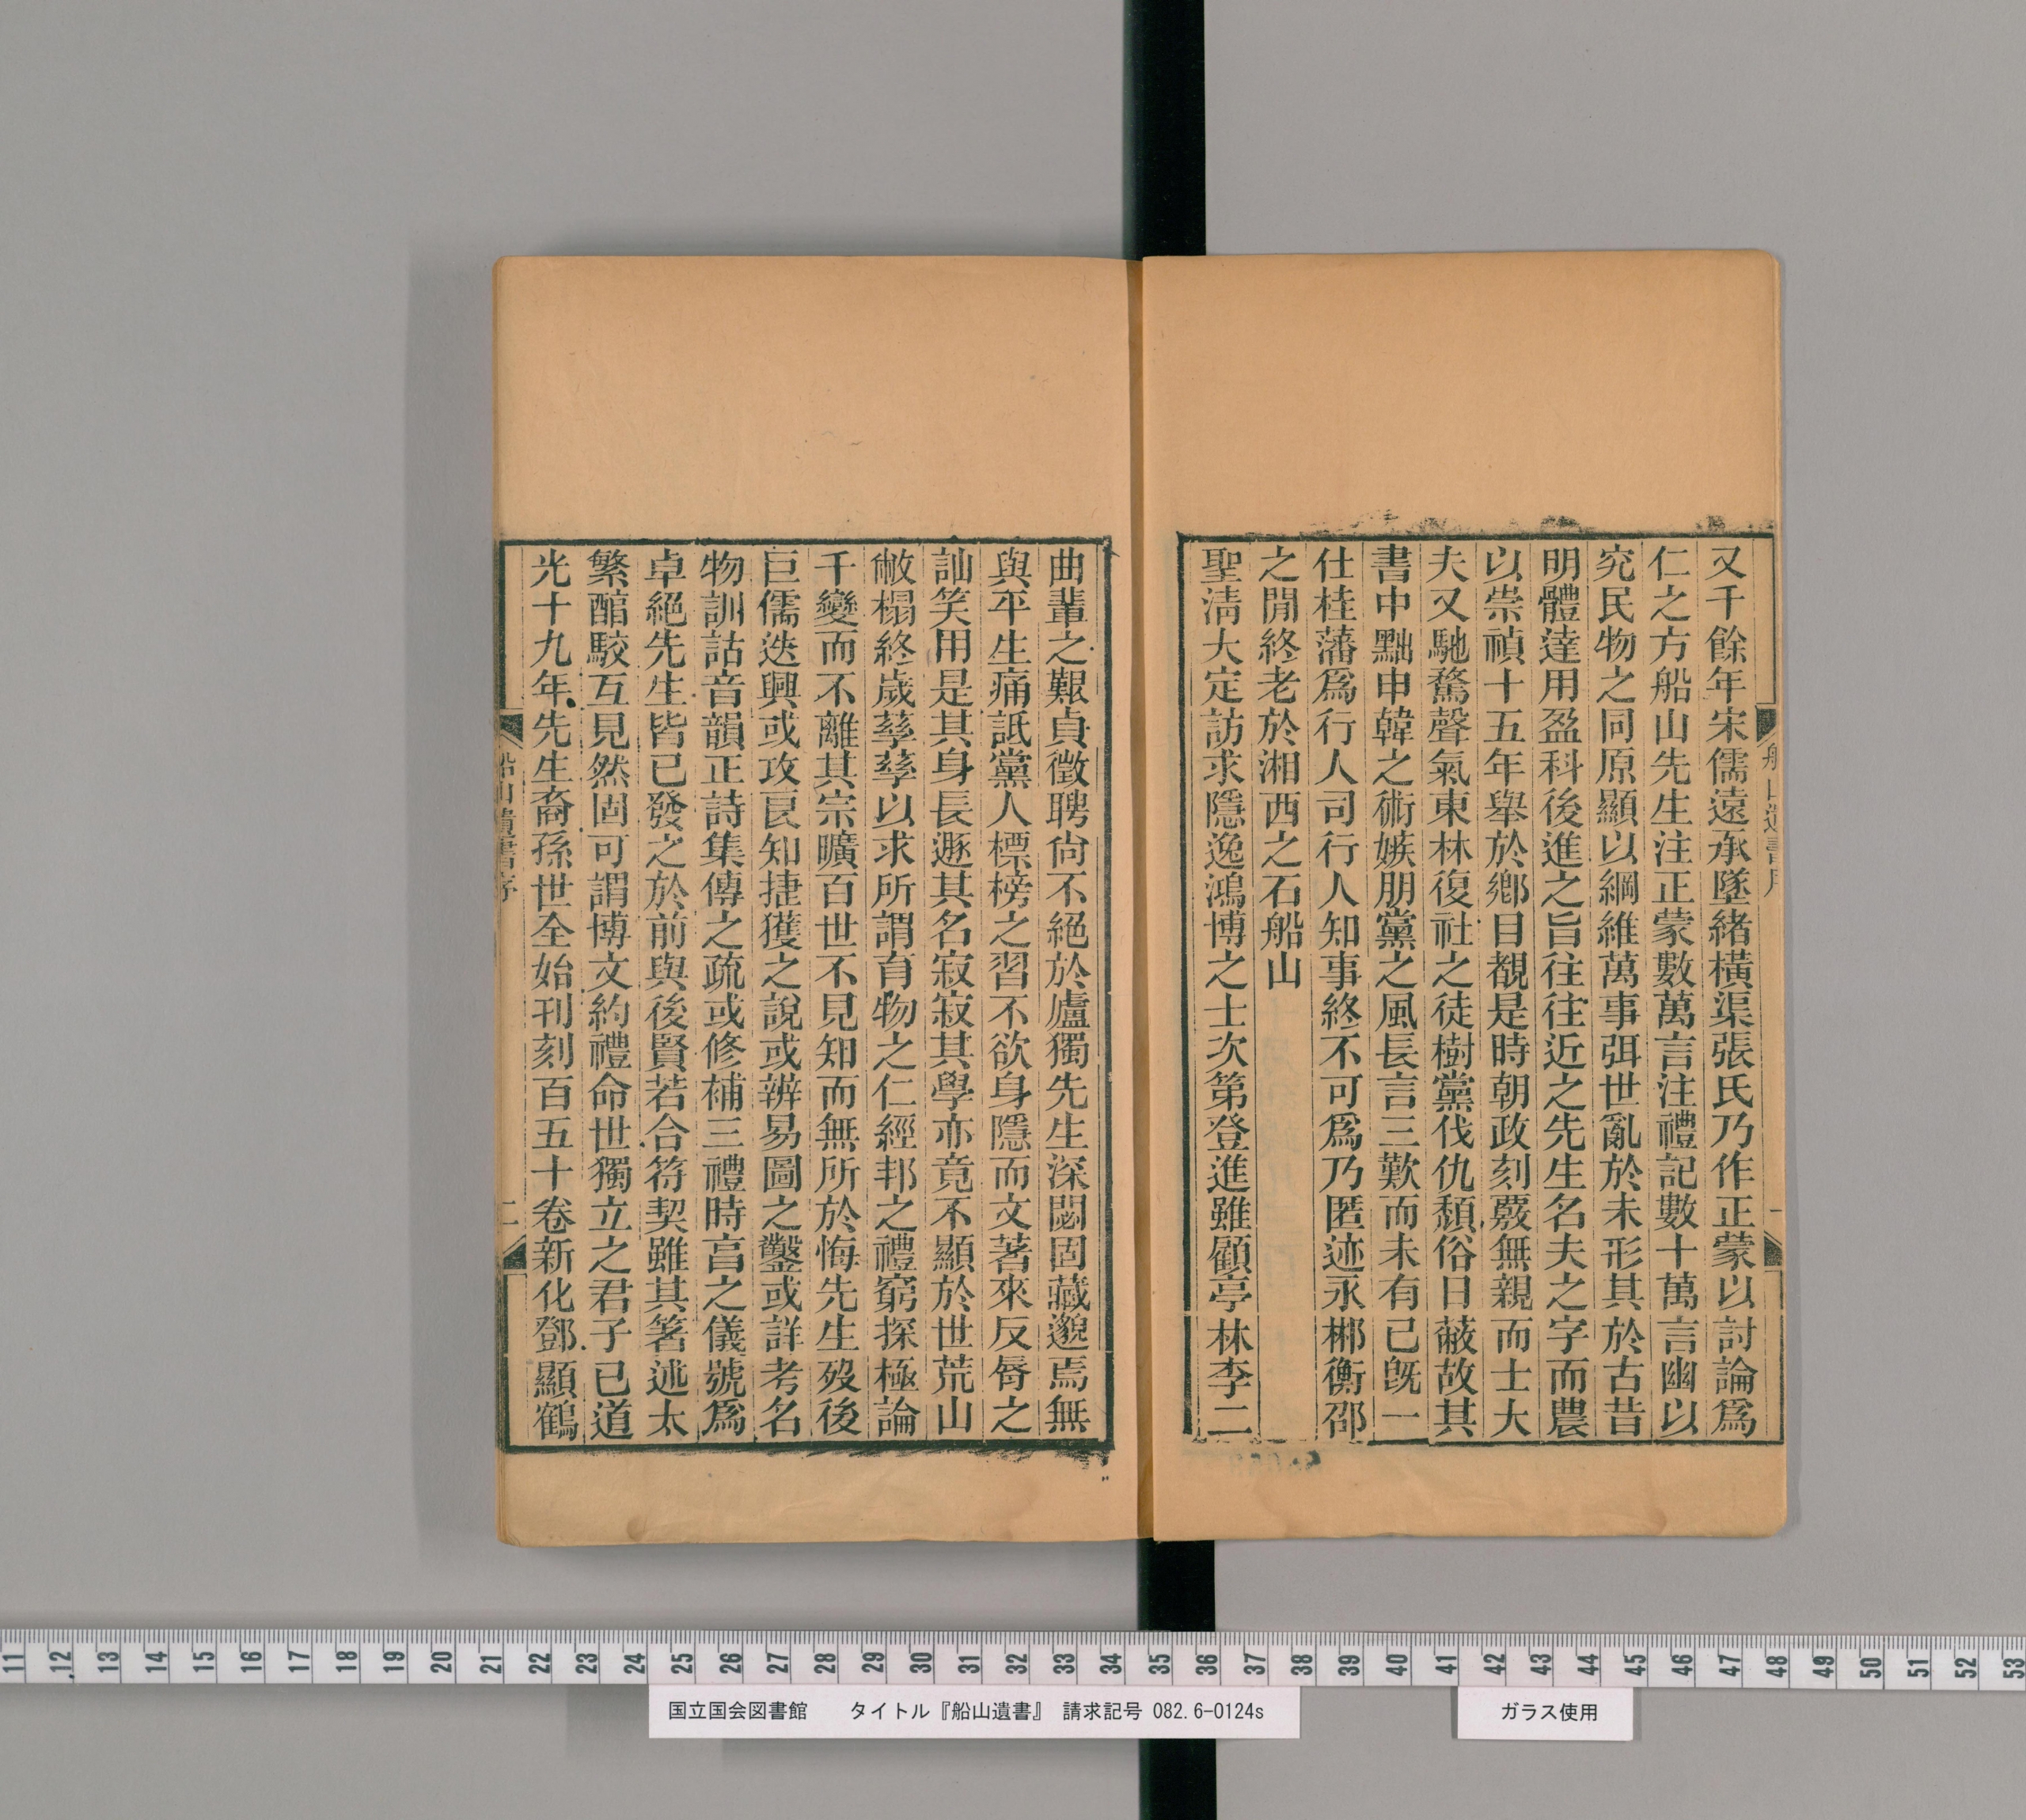 又千餘年宋儒遠承墜緒橫渠張氏乃作正蒙以討論爲
仁之方船山先生注正蒙數萬言注禮記數十萬言幽以
究民物之同原顯以綱維萬事弭世亂於未形其於古昔
明體達用盈科後進之旨往往近之先生名夫之字而農
以崇禎十五年舉於鄉目覩是時朝政刻覈無親而士大
夫又馳騖聲氣東林復社之徒樹黨伐仇頹俗日蔽故其
書中黜申韓之術嫉朋黨之風長言三歎而未有已旣一
仕桂藩爲行人司行人知事終不可爲乃匿迹永郴衡邵
之閒終老於湘西之石船山
聖淸大定訪求隱逸鴻博之士次第登進雖顧亭林李二
曲輩之艱貞徵聘尙不絕於廬獨先生深閟固藏邈焉無
與平生痛詆黨人標榜之習不欲身隱而文著來反脣之
訕笑用是其身長遯其名寂寂其學亦竟不顯於世荒山
敝榻終歲孳孳以求所謂育物之仁經邦之禮窮探極論
千變而不離其宗曠百世不見知而無所於悔先生歿後
巨儒迭興或攻良知捷獲之說或辨易圖之鑿或詳考名
物訓詁音韻正詩集傳之疏或修補三禮時享之儀號爲
卓絕先生皆已發之於前與後賢若合符契雖其箸述太
繁醇駮互見然固可謂博文約禮命世獨立之君子已道
光十九年先生裔孫世全始刊刻百五十卷新化鄧顯鶴
船山遺書序
二
国立国会図書館 タイトル『船山遺書』 請求記号 082.6-0124s
ガラス使用
11 12 13 14 15 16 17 18 19 20 21 22 23 24 25 26 27 28 29 30 31 32 33 34 35 36 37 38 39 40 41 42 43 44 45 46 47 48 49 50 51 52 53